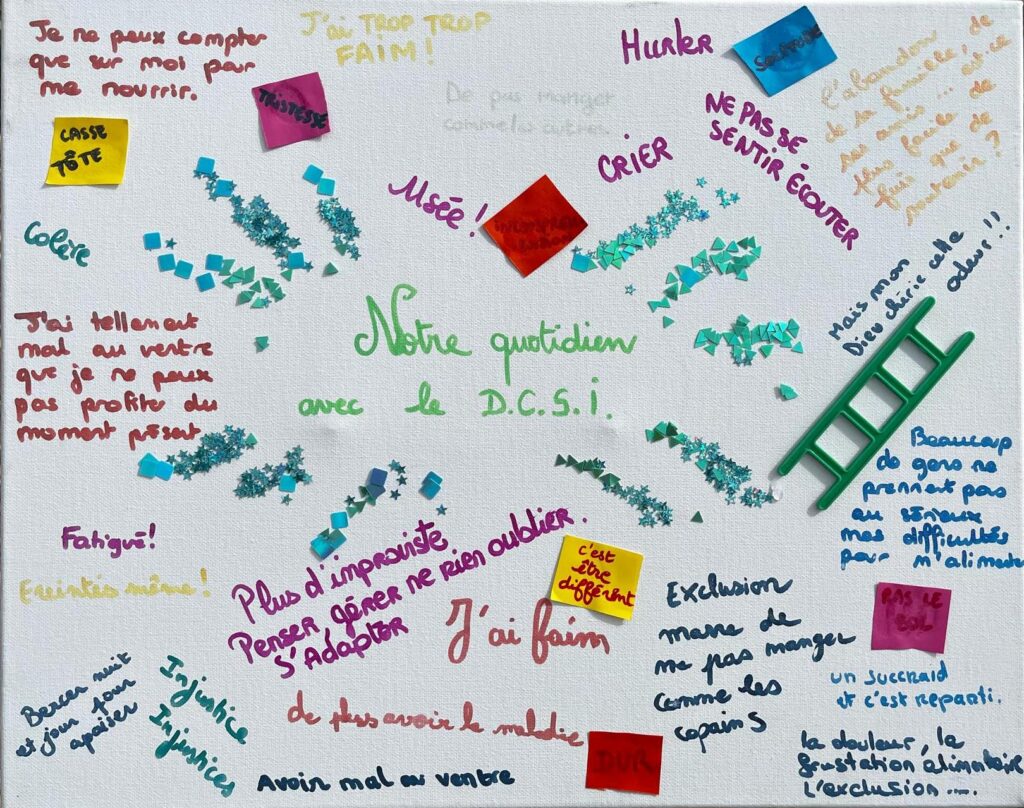 Je ne peux compter
que sur moi pour
me nourrir.
J'ai TROP TROP
FAIM !
Hurler
SOLITUDE
l'abandon de
de sa famille,
ses amis... est-ce
plus facile de
fuir que de
soutenir ?
TRISTESSE
De pas manger
comme les autres.
CASSE
TÊTE
NE PAS SE
SENTIR ÉCOUTER
CRIER
Usée !
Colère
Mais mon
Dieu chérie cette
odeur !!
J'ai tellement
mal au ventre
que je ne peux
pas profiter du
moment présent
Notre quotidien
avec le D.C.S.I.
Beaucoup
de gens ne
prennent pas
au sérieux
mes difficultés
pour m'alimente
Fatigué !
Ereintés même !
Plus d'improviste
Penser gérer ne rien oublier.
S'Adapter
c'est
être
différent
J'ai faim
Exclusion
marre de
me pas manger
comme les
copains
PAS LE
BOL
un succraid
et c'est reparti.
Bercer nuit
et jour pour
apaiser
Injustice
Injustices
de plus avoir la maladie
DUR
Avoir mal au ventre
la douleur, la
frustation alimentaire
L'exclusion....